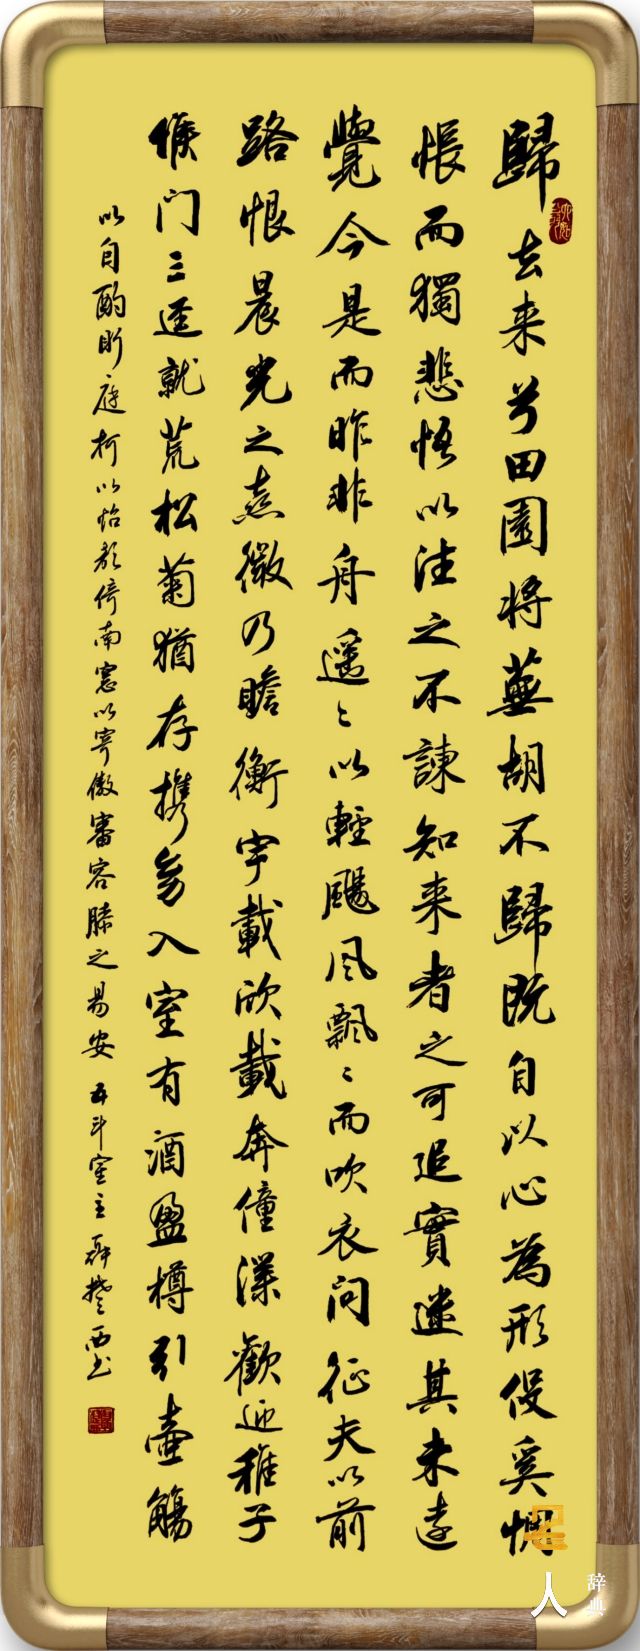 歸去来兮田園将蕪胡不歸既自以心為形役奚惆
悵而獨悲悟以往之不諫知来者之可追實迷其未遠
覺今是而昨非舟遥々以輕颺风飄々而吹衣问征夫以前
路恨晨光之熹微乃瞻衡宇載欣載奔僮僕歡迎稚子
候门三迳就荒松菊猶存携幼入室有酒盈樽引壷觴
以自酌眄庭柯以怡颜倚南窓以寄傲審容膝之易安 五斗室主 西书
人
辞典